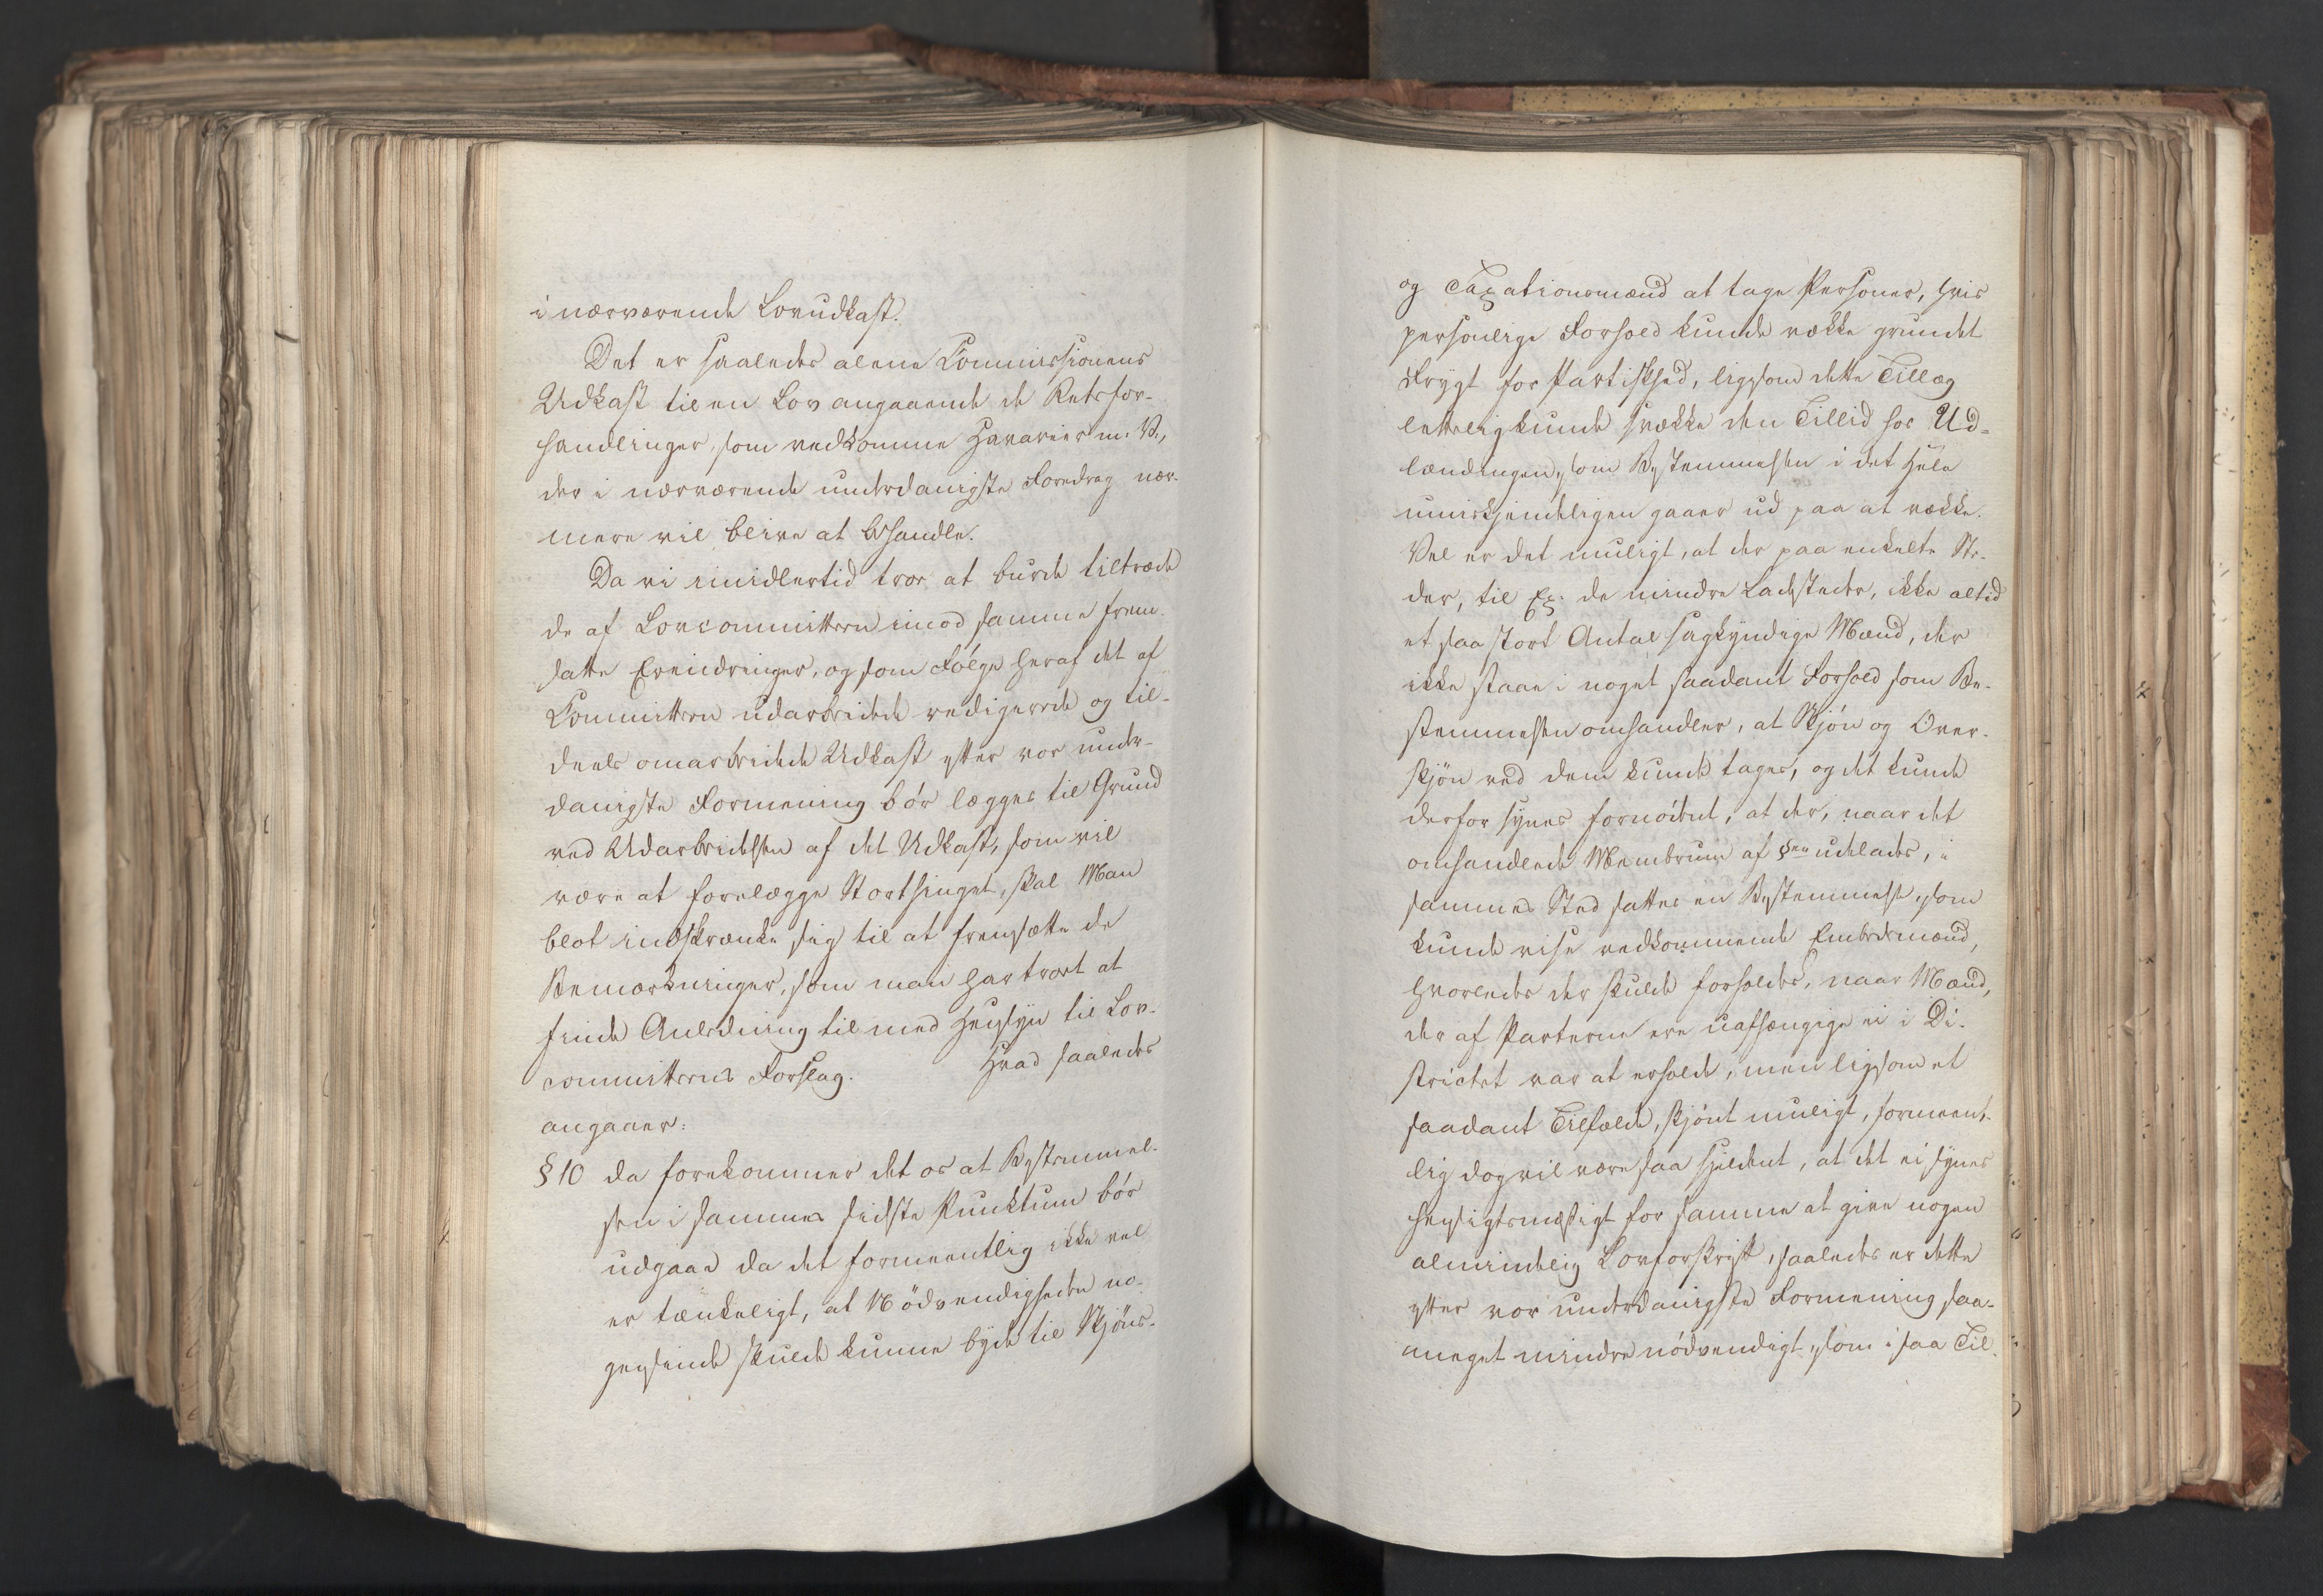 i nærværende Lovudkast.
Det er saaledes alene Commissionens
Udkast til en Lov angaaende de Retsfor-
handlinger, som vedkomme Havarier m: V.,
der i nærværende underdanigste Foredrag nær-
mere vil blive at behandle.
Da vi imidlertid troe at burde tiltræde
de af Lovcommitteen imod samme frem-
satte Erindringer, og som Fölge heraf det af
Committeen udarbeidede redigerede og til-
deels omarbeidede Udkast efter vor under-
danigste Formening bör lægges til Grund
ved Udarbeidelsen af det Udkast, som vil
være at forelægge Storthinget, skal Man
blot indskrænke sig til at fremsætte de
Bemærkninger, som man har troet at
finde Anledning til med Hensyn til Lov-
committeens Forslag. Hvad saaledes
angaaer:
§ 10 da forekommer det os at Bestemmel-
sen i sammes sidste Punktum bör
udgaae da det formeentlig ikke vel
er tænkeligt, at Nödvendigheden no-
gensinde skulde kunne byde til Skjöns-
og Taxationsmænd at tage Personer, hvis
personlige Forhold kunde vække grundet
Frygt for Partiskhed, ligesom dette Tillæg
letteligkunde svække den Tillid hos Ud-
lændingen, som Bestemmelsen i det Hele
umiskjendeligen gaaer ud paa at vække.
Vel er det muligt, at der paa enkelte Ste-
der, til Ex: de mindre Ladesteder, ikke altid
et saa stort Antal sagkyndige Mænd, der
ikke staae i noget saadant Forhold som Be-
stemmelsen omhandler, at Skjön og Over-
skjön ved dem kunde tages, og det kunde
derfor synes fornödent, at der, naar det
omhandlede Membrum af §en udelades, i
sammes Sted sattes en Bestemmelse, som
kunde vise vedkommende Embedsmænd,
hvorledes der skulde forholdes, naar Mænd,
der af Parterne ere uafhængige ei i Di-
strictet var at erholde, men ligesom et
saadant Tilfælde, skjönt muligt, formeent-
lig dog vil være saa sjeldent, at det ei synes
hensigtsmæssigt for samme at give nogen
almindelig Lovforskrift, saaledes er dette
efter vor underdanigste Formening saa-
meget mindre nödvendigt, som i saa Til-